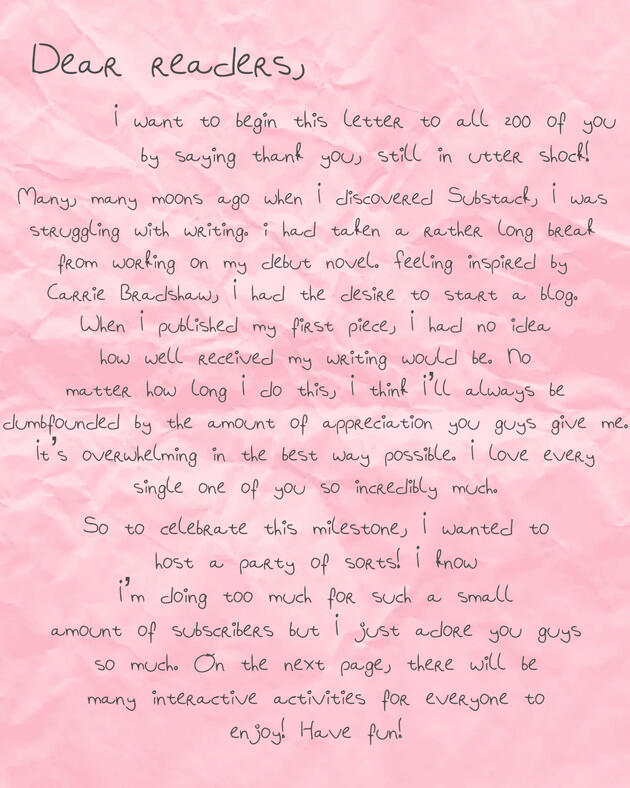 Dear readers,
i want to begin this letter to all 200 of you
by saying thank you, still in utter shock!
Many, many moons ago when i discovered Substack, i was
struggling with writing. i had taken a rather long break
from working on my debut novel. feeling inspired by
Carrie Bradshaw, i had the desire to start a blog.
When i published my first piece, i had no idea
how well received my writing would be. No
matter how long i do this, i think i'll always be
dumbfounded by the amount of appreciation you guys give me.
it's overwhelming in the best way possible. i love every
single one of you so incredibly much.
So to celebrate this milestone, i wanted to
host a party of sorts! i know
i'm doing too much for such a small
amount of subscribers but i just adore you guys
so much. On the next page, there will be
many interactive activities for everyone to
enjoy! Have fun!